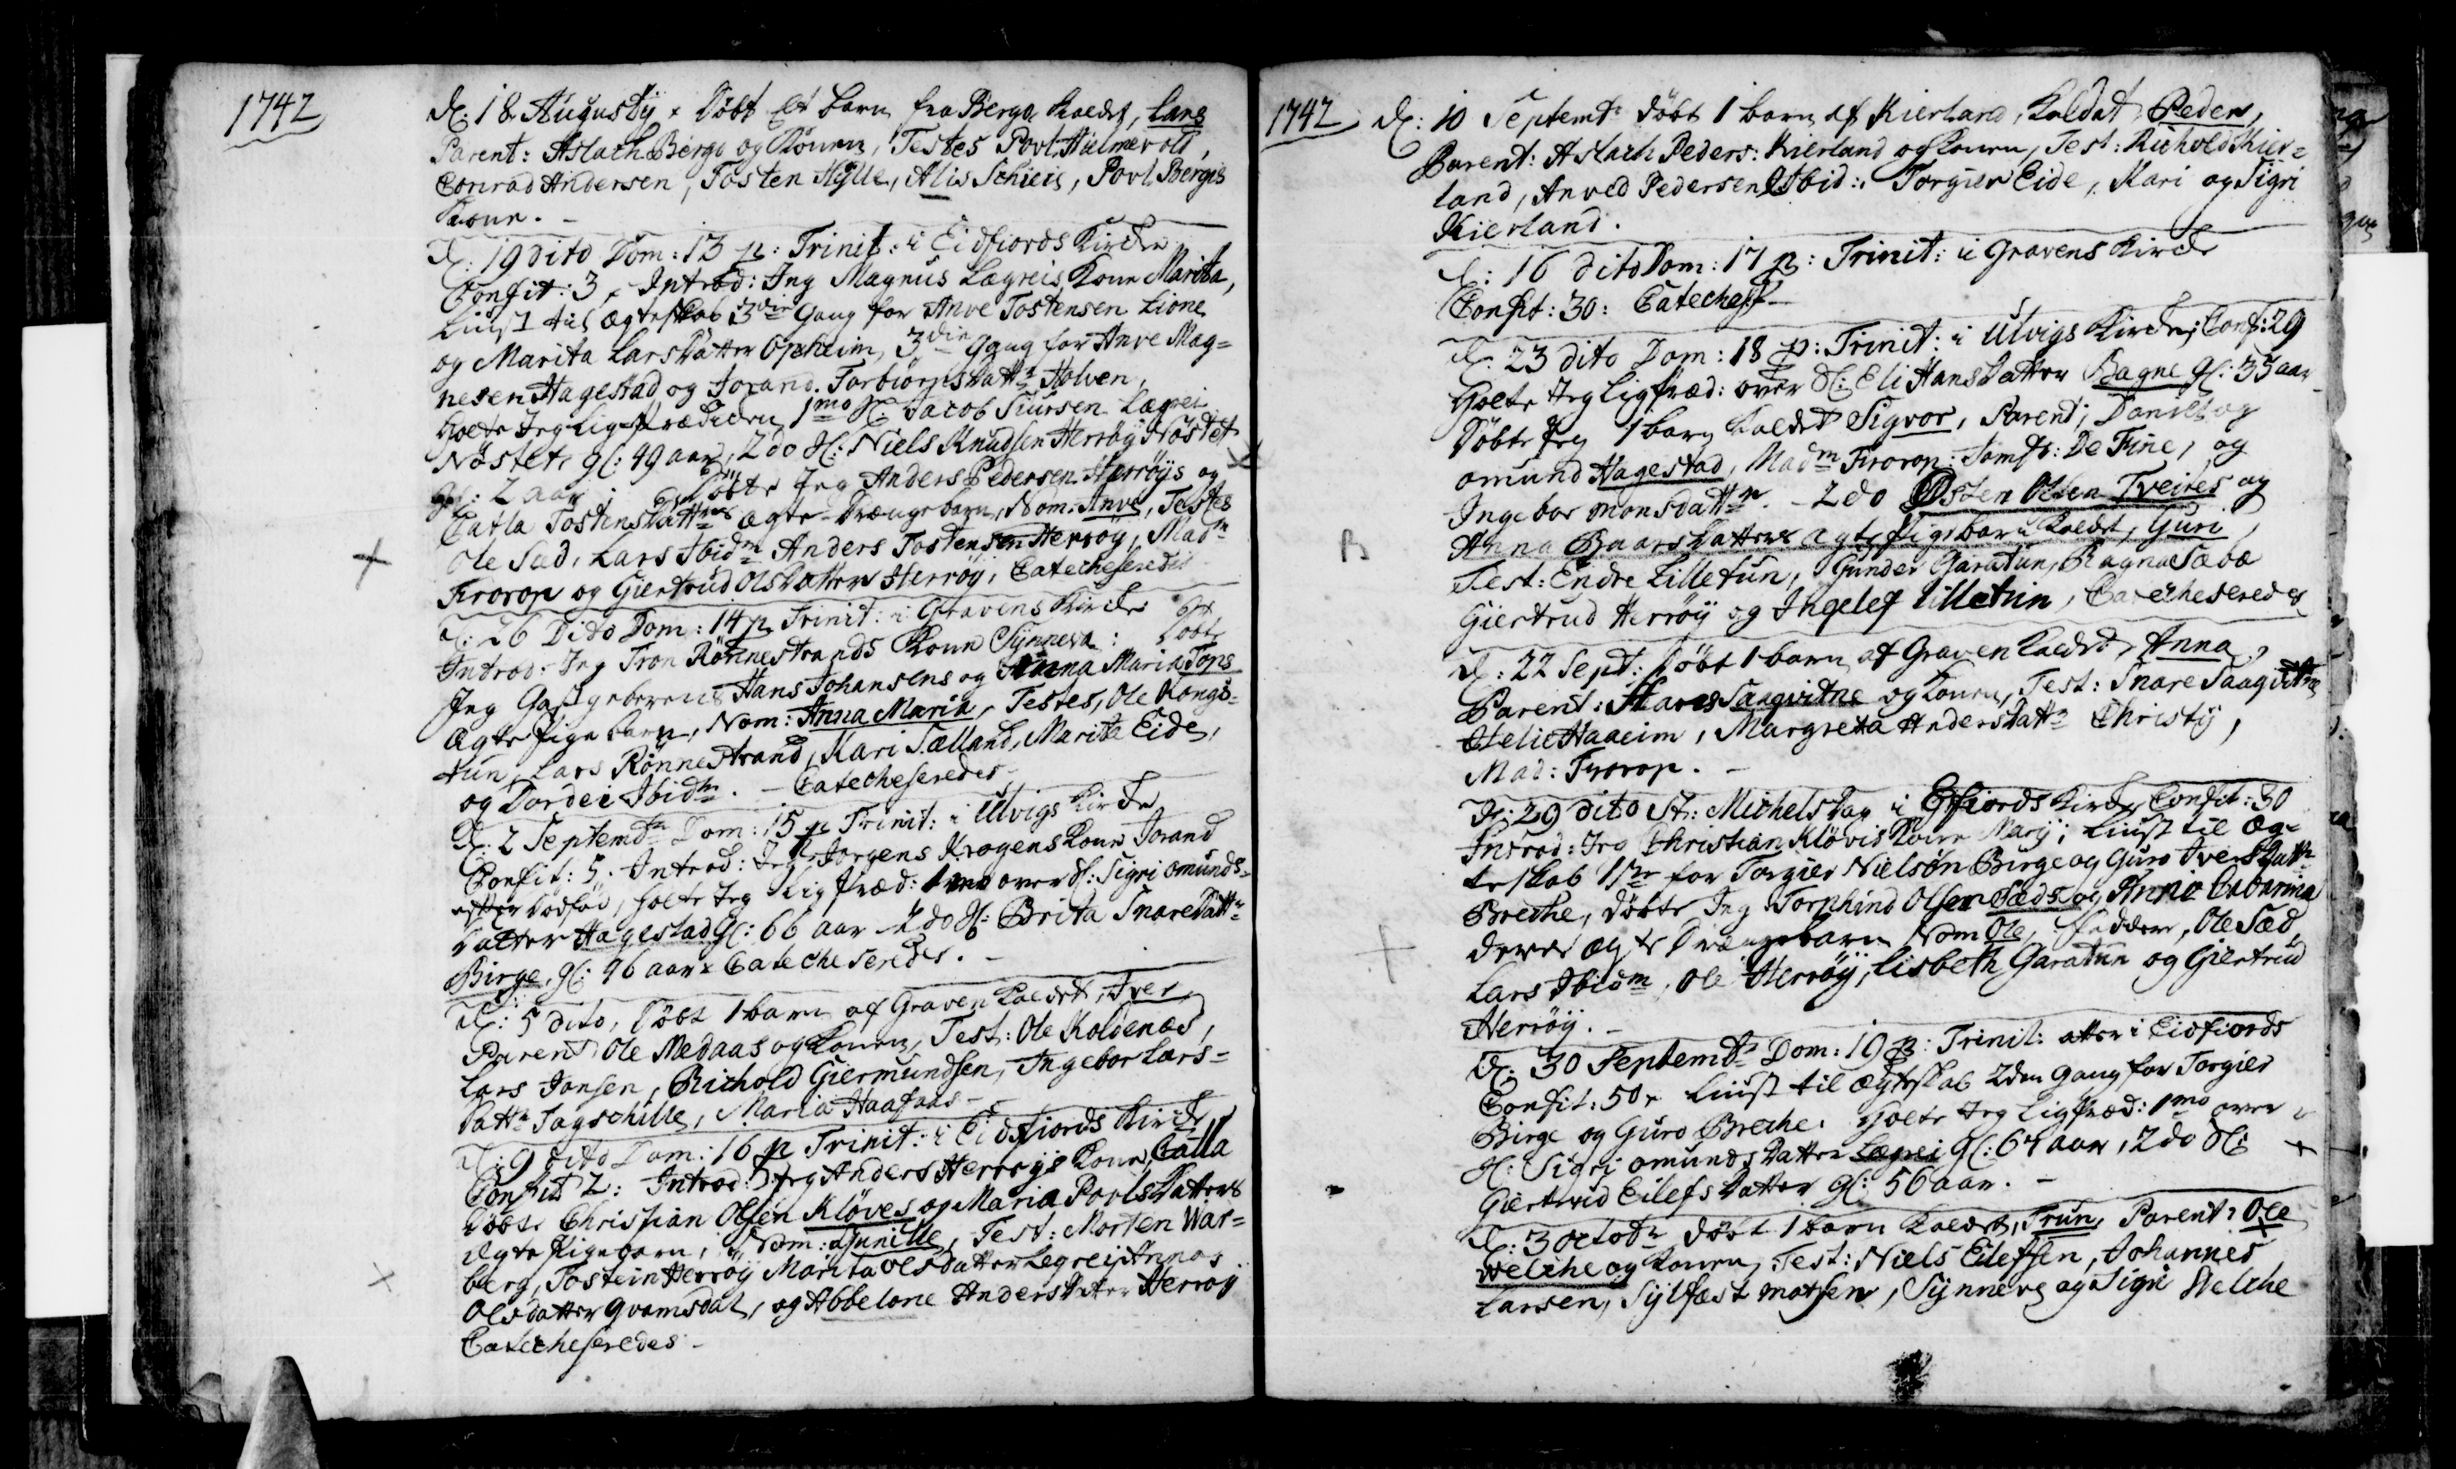 1742
d: 18 Augustij Döbt Et barn fra Berge kaldet, Lars
Parent: Aslach Berge og Konen, Testes Povl Hielmevold,
Conrad Andersen, Tosten Hylle, Alis Schieis, Povl Berges
Kone. -
d: 19 dito Dom: 13 p: Trinit: i Eidfiords Kirche
Confit: 3, Introd: Jeg Magnus Lægreis Kone Marita,
Liust til Ægteskab 3die Gang for Anve Tostensen Lione
og Marita Lars Datter Opheim, 3die Gang for Anve Mag=
nesen Hagestad og Jorand Torbiörns Dattr Holven,
holte Jeg Ligprædiken 1mo Sl: Jacob Siursen Lægrei
Nöstet, gl: 49 aar, 2do Sl: Niels Knudsen Herröy Nöstet
gl: 2 aar; Döbte Jeg Anders Pedersen Herröys og
Catla Tostens Datters ægte Drængebarn, Nom: Anve, Testes
Ole Sæd, Lars Ibidm Anders Tostensen Herröy, Madm
Frorop og Giertrud Ols Datter Herröy, Catecheseredes
d: 26 Dito Dom: 14 p Trinit: i Gravens Kirche
Introd: Jeg Tron Rönnestrands Kone Synneva: Döbte
Jeg Gastgeberens Hans Johansens og Anna Maria Tops
Ægte Pigebarn, Nom: Anna Maria, Testes, Ole Kongs=
tun, Lars Rönnestrand, Kari Sælland, Marita Eide,
og Dordei Ibidm. - Catecheseredes
d: 2 Septembr Dom: 15 p Trinit: i Ulvigs Kirche
Confit: 5. Introd: Jeg Jörgens Krogens Kone Jorand
efter dödföd, holte Jeg Ligpræd: 1mo over Sl: Sigri Omunds=
Datter Hagestad gl: 66 aar 2do Sl: Brita Snare Dattr
Birge, gl: 96 aar Catecheseredes. -
d: 5 dito, Döbt 1 barn af Graven kaldet, Iver
Parent Ole Medaas og Konen, Test: Ole Koldenæs,
Lars Jonsen, Richold Giermundsen, Ingebor Lars=
Dattr Tagschille, Maria Haafaas -
d: 9 dito Dom: 16 p Trinit: i Eidfiords Kirche
Confit 2: Introd: Jeg Anders Herröys Kone Catla
Döbte Christian Olsen Klöves og Maria Povls Datters
ægte Pigebarn, Nom: Gunille, Test: Morten War=
berg, Tostein Herröy Marita Olsdatter Legrei, Annas
Olsdatter Qvamsdal, og Abbelone Anders Datter Herröy
Catecheseredes -
1742
d: 10 Septembr döbt 1 barn af Kierland, Kaldet Peder,
Parent: Aslach Peders: Kierland og Konen, Test: Richold Kier=
land, Anved Pedersen Ibid: Torgier Eide, Kari og Sigri
Kierland.
d: 16 dito Dom: 17 p: Trinit: i Gravens Kirche
Confit: 30: Catechess -
d: 23 dito Dom: 18 p: Trinit: i Ulvigs Kirche, Conf: 29
Holte Jeg Ligpræd: over Sl: Eli Hans Datter Bagne gl: 35 aar
Döbte Jeg 1 barn kaldet Sigvor, Parent; Daniel og
Omund Hagestad, Madm Frorop: Jomfr: De Fine, og
Ingebor Monsdattr. - 2do Östen Olsen Tveites og
Anna Baars Datters ægte Pigebarn kaldet, Guri,
B
Test: Endre Lilletun, Gunder Garatun, Ragna Sæbæ
Giertrud Herröy og Ingelef Lilletun, Catecheseredes
d: 22 Sept: Döbt 1 barn af Graven kaldet, Anna,
Parent: Hans Saaqvitne og Konen, Test: Snare Saaqvitne
Helie Haaeim, Margreta Anders Dattr Christij,
Mad: Frorop. -
d: 29 dito St: Michels Dag i Eidfiords Kirche, Confit: 30
Introd: Jeg Christian Klöves Kone Mary; Liust til Æg=
teskab 1ste for Torgier Nielsen Birge og Guro Ivers Dattr
Breche, Döbte Jeg Torphind Olsen Sæds og Anne Cabarina
deres ægte Drængebarn Nom Ole, Faddere, Ole Sæd,
Lars Ibidm, Ole Herröy, Lisbeth Garatun og Giertrud
Herröy. -
d: 30 Septembr Dom: 19 p: Trinit: atter i Eidfiords
Confit: 50. Liust til ægteskab 2den Gang for Torgier
Birge og Guro Breche. Holte Jeg Ligpræd: 1mo over
Sl: Sigri Omunds Datter Lægrei gl: 64 aar, 2do Sl:
Giertrud Eilefs Datter gl: 56 aar. -
d: 3 Octobr döbt 1 barn kaldet, Trun, Parent: Ole
Welche og Konen, Test: Niels Eilefsen, Johannes
Larsen, Sylfæst Matsen, Synneve og Sigri Welche